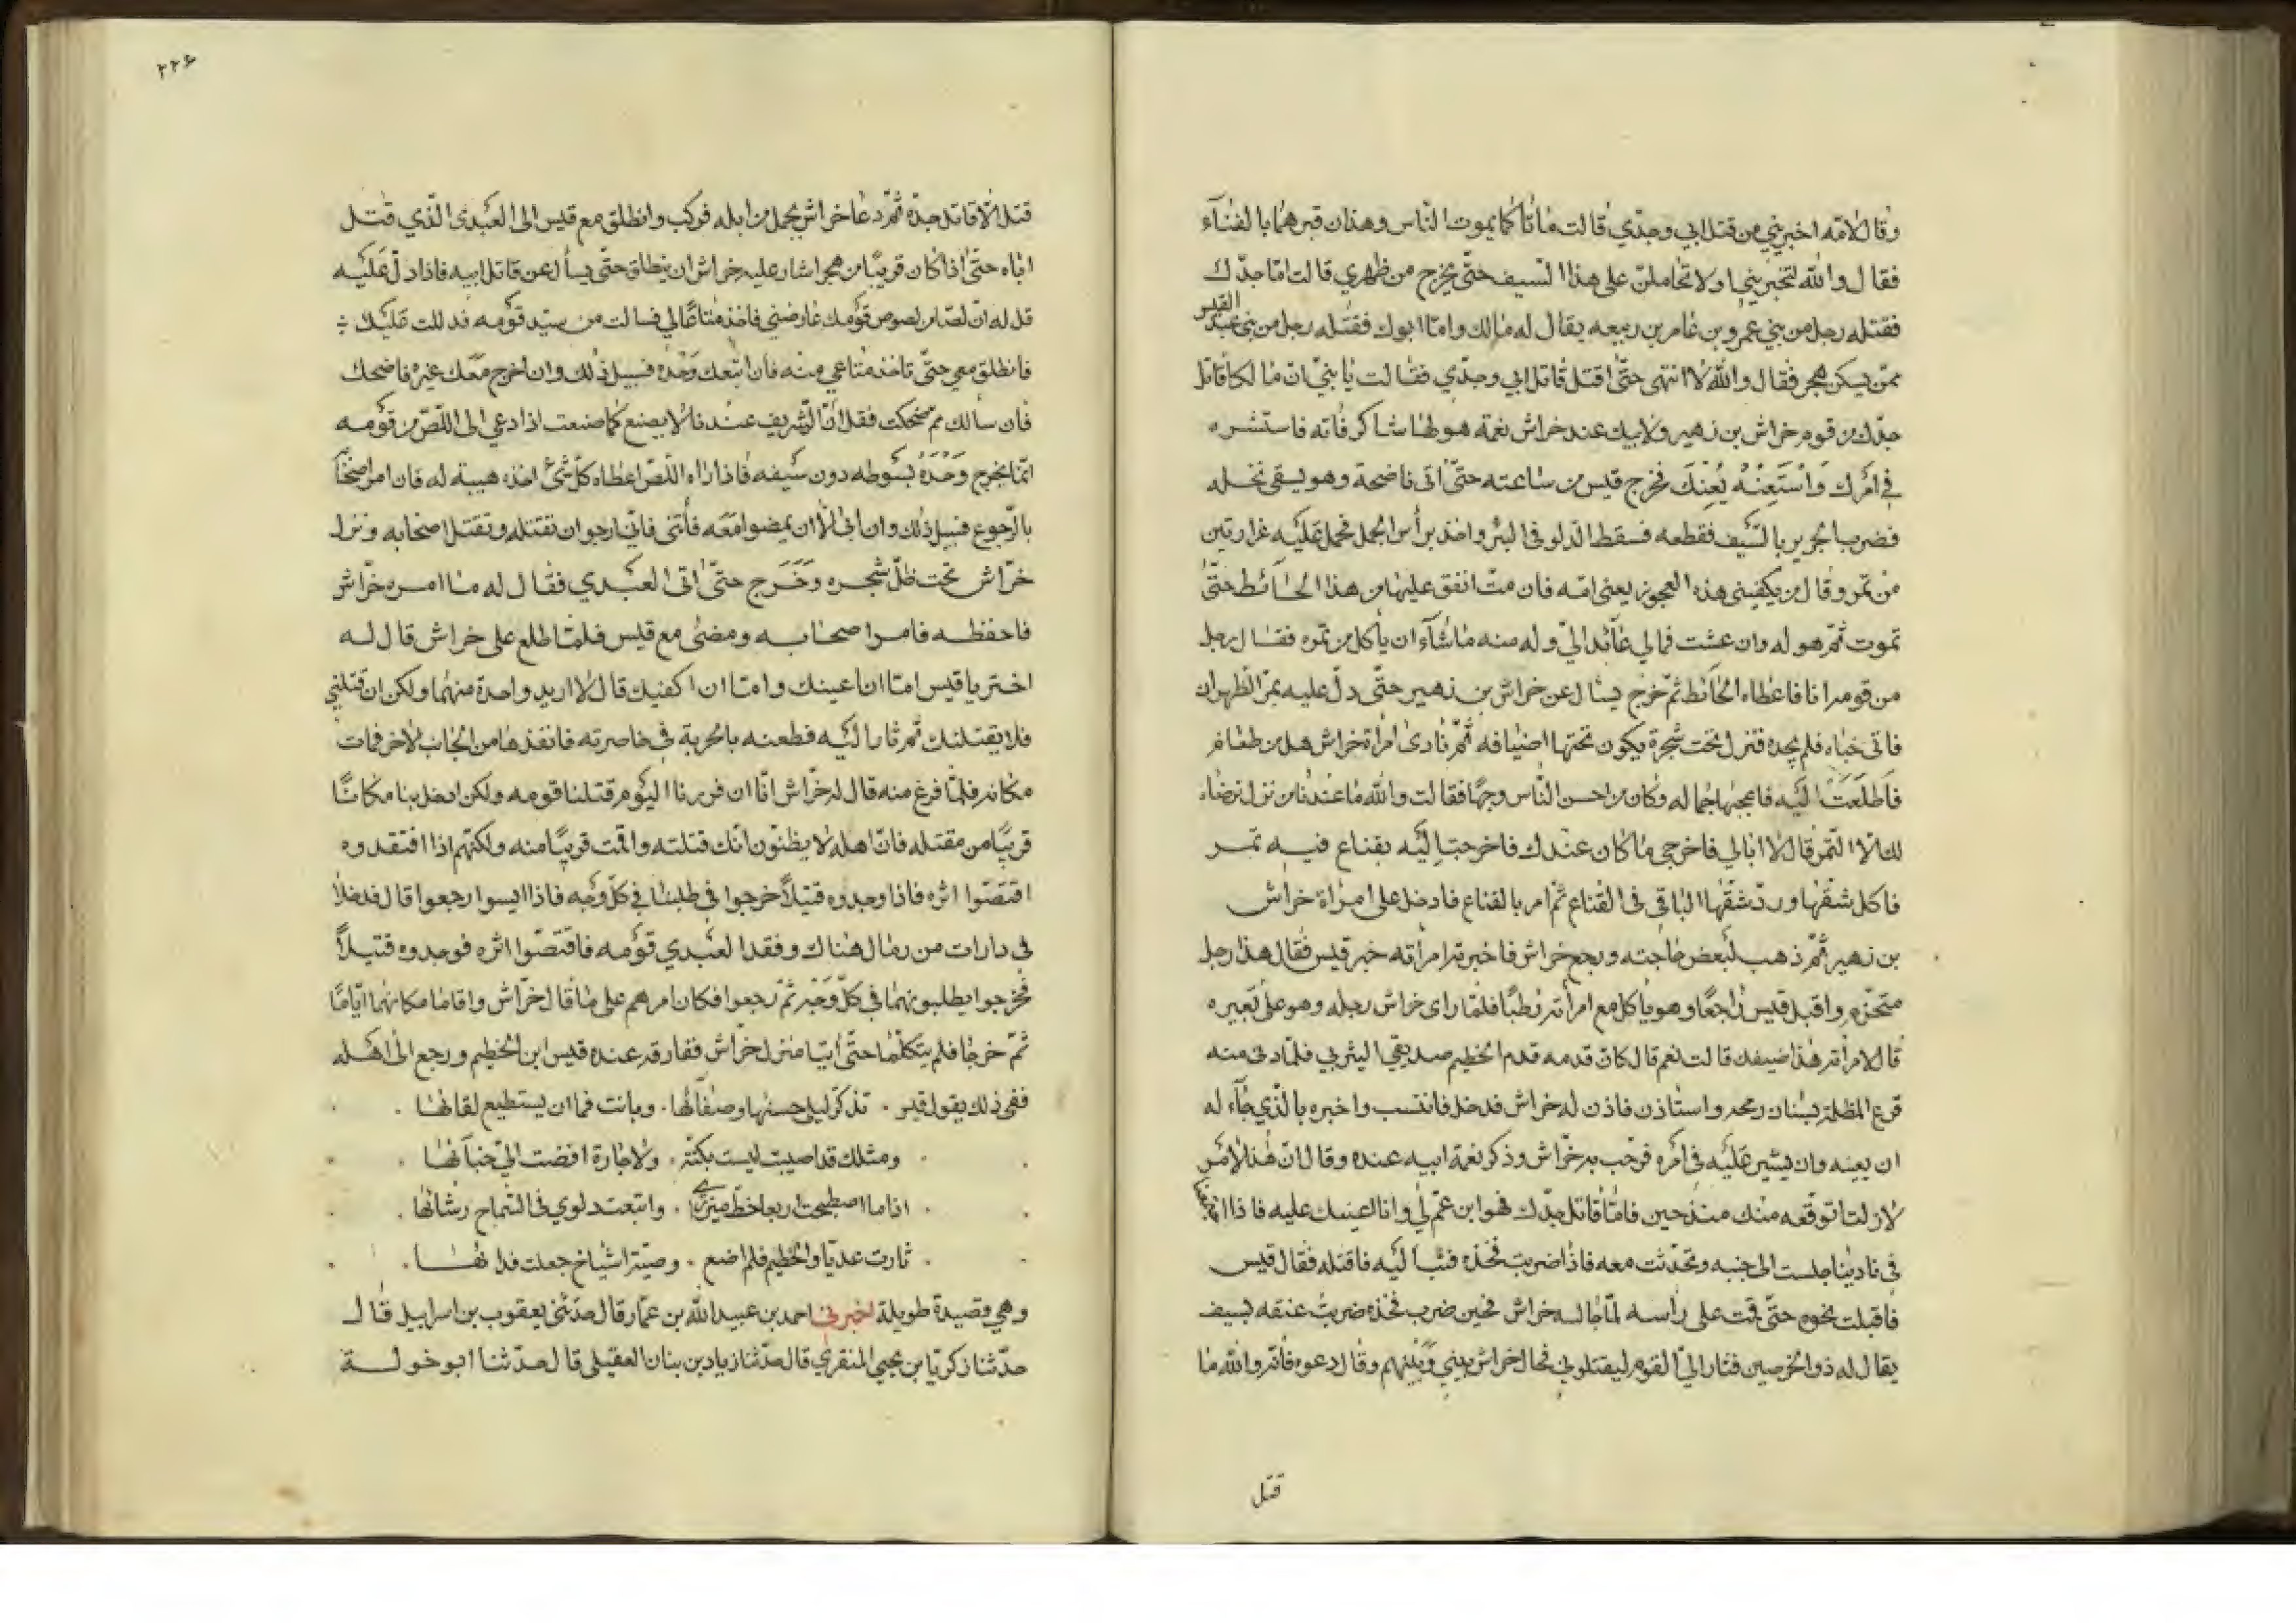 وقال لامّه اخبريني من قتل ابي وجدّي قالت ماتا كما يموت النّاس وهذان قبرهما بالفنآء
فقال والله لتخبريني او لاتحاملنّ على هذا السّيف حتّى يخرج من ظهري قالت امّا جدّك
فقتله رجل من بني عمرو بن عامر بن ربيعه يقال له مالك وامّا ابوك فقتله رجل من بني عبد القيس
ممّن يسكن هجر فقال والله لا انتهى حتّى اقتل قاتل ابي وجدّي فقالت يا بنيّ انّ مالكا قاتل
جدّك من قوم خراش بن زهير ولابيك عند خراش نعمة هو لها شاكر فاته فاستشره
في امرك وَاسْتَعِنْهُ يُعِنْكَ فخرج قيس من ساعته حتّى اتى ناضحة وهو يسقي نخله
فضرب الجرير بالسّيف فقطعه فسقط الدّلو في البئر واخذ برأس الجمل فحمل عليه غرارتين
من تمر وقال من يكفيني هذه العجوز يعني امّه فان متّ انفق عليها من هذا الحائط حتّى
تموت ثمّ هو له وان عشت فمالي عائد اليّ وله منه ما شآء ان يأكل من تمره فقال رجل
من قومه انا فاعطاه الحائط ثمّ خرج يسال عن خراش بن زهير حتّى دلّ عليه بمرّ الظهران
فاتى خباه فلم يجده فنزل تحت شجرة يكون تحتها اضيافه ثمّ نادى امراة خراش هل من طعام
فَاطَّلَعَتْ اليه فاعجبها جماله وكان من احسن النّاس وجهًا فقالت والله ما عندنا من نزل نرضاه
لك الا التّمر قال لا ابالي فاخرجي ما كان عندك فاخرجت اليه بقناع فيه تمر
فاكل شقّها وردّ شقّها الباقي في القناع ثمّ امر بالقناع فادخل على امراة خراش
بن زهير ثمّ ذهب لبعض حاجته ورجع خراش فاخبرته امرأته خبر قيس فقال هذا رجل
متحرّم واقبل قيس راجعًا وهو ياكل مع امرأته رطبًا فلمّا راى خراش رجله وهو على بعيره
قال لامرأته هذا ضيفك قالت نعم قال كانّ قدمه قدم الخطيم صديقي اليثربي فلمّا دنى منه
قرع المظلة بسنان رمحه واستاذن فاذن له خراش فدخل فانتسب واخبره بالّذي جآء له
ان يعينه وان يشير عليه في امره فرحّب به خرّاش وذكر نعمة ابيه عنده وقال انّ هذا الامر
لازلنا نتوقّعه منك منذ حين فامّا قاتل جدّك فهو ابن عمّ لي وانا اعينك عليه فاذا اجتمعنا
في نادينا جلست الى جنبه وتحدّثت معه فاذا ضربت فخذه فثب اليه فاقتله فقال قيس
فاقبلت نحوه حتّى قمت على رأسه لمّا جالسه خراش فحين ضرب فخذه ضربت عنقه بسيف
يقال له ذو الخرصين فثار اليّ القوم ليقتلوني فحال خراش بيني وبينهم وقال دعوه فانّه والله ما
قتل
٢٢٤
قتل الّا قاتل جدّه ثمّ دعا خراش بجمل من ابله فركب وانطلق مع قيس الى العبدى الّذي قتل
اباه حتّى اذا كان قريبًا من هجر اشار عليه خراش ان ينطلق حتّى يسأل عن قاتل ابيه فاذا دلّ عليه
قل له انّ لصّا من لصوص قومك عارضني فاخذ متاعًا لي فسالت من سيّد قومه فدللت عليك
فانطلق معي حتّى تاخذ متاعي منه فان اتبعك وَحْدَه فسبيل ذلك وان اخرج معك غيره فاضحك
فان سالك ممّ ضحكت فقل انّ الشريف عندنا لا يصنع كما صنعت اذا دعي الى اللّصّ من قومه
انّما يخرج وَحْدَهُ بسوطه دون سيفه فاذا راه اللّصّ اعطاه كلّ شئ اخذه هيبة له فان امر اصحابه
بالرّجوع فسبيل ذلك وان ابى الّا ان يمضوا معه فأتني به فانّي ارجو ان تقتله وتقتل اصحابه ونزل
خرّاش تحت ظلّ شجره وَخَرَج حتّى اتى العبدي فقال له ما امره خرّاش
فاحفظه فامر اصحابه ومضى مع قيس فلمّا طلع على خراش قال له
اختر يا قيس امّا ان اعينك وامّا ان اكفيك قال لا اريد واحدة منهما ولكن ان قتلني
فلا يفلتنك ثمّ ثار اليه فطعنه بالحربة في خاصرته فانفذها من الجانب الاخر فمات
مكانه فلمّا فرغ منه قال له خرّاش انّا ان فررنا اليوم قتلنا قومه ولكن ادخل بنا مكانًا
قريبًا من مقتله فانّ اهله لا يظنّون انّك قتلته واقمت قريبًا منه ولكنّهم اذا افتقدوه
اقتصّوا اثره فاذا وجدوه قتيلًا خرجوا في طلبنا في كلّ وجه فاذا ايسوا رجعوا قال فدخلا
في دارات من رمال هناك وفقد العبدي قومه فاقتصّوا اثره فوجدوه قتيلًا
فخرجوا يطلبونهما في كلّ وَجْه ثمّ رجعوا فكان امرهم على ما قال خرّاش واقاما مكانهما ايّامًا
ثمّ خرجا فلم يتكلّما حتّى أتيا منزل خرّاش ففارقه عنده قيس ابن الخطيم ورجع الى اهله
ففي ذلك يقول قيس . تذكّر ليلى حسنها وصفآئها . وبانت فما ان يستطيع لقائها .
ومثلك قد اصيبت ليست بكنّة . ولا جارة افضت اليّ خبآئها
اذا ما اصطبحت اربعا خطّ ميزري . واتبعت دلوي في السّماح رشائها .
ثارت عديّا والخطيم فلم اضع . وصيّة اشياخ جعلت فدائها .
وهي قصيدة طويلة اخبرني احمد بن عبيد الله بن عمّار قال حدّثني يعقوب بن اسراييل قال
حدّثنا زكريّا بن يحيى المنقري قال حدّثنا زياد بن بنان العقيلي قال حدّثنا ابو خولة